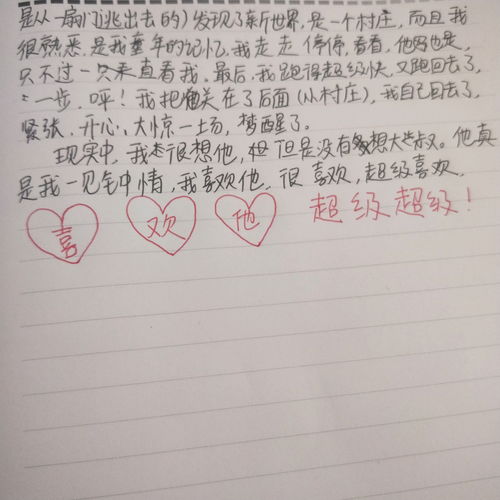 是从一扇门逃出去的)发现了新世界,是一个村庄,而且我
很熟悉,是我童年的记忆,我走走停停,看看,他也是,
只不过一只来直看我,最后,我跑得超级快,又跑回去了,
一步,呯!我把他关在了后面(从村庄),我自己回去了,
紧张,开心,大惊一场,梦醒了。
现实中,我很想他,但是没有多想大些叔。他真
是我一见钟情,我喜欢他,很喜欢,超级喜欢,
喜 欢 他 超级超级!